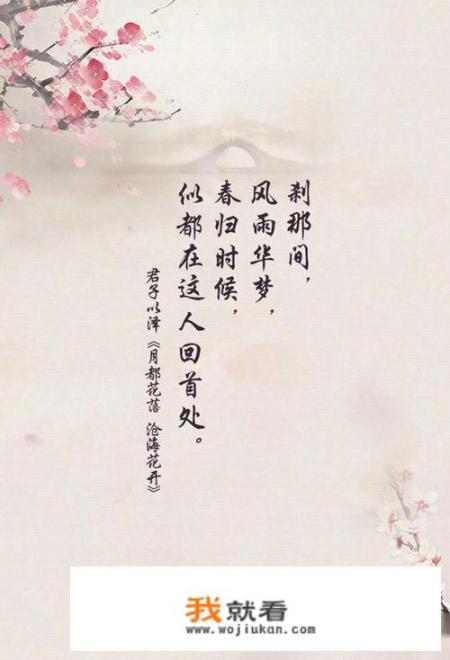 刹那间，
风雨华梦，
春归时候，
似都在这人回首处。
君子以泽《月都花落 沧海花开》
我就看
www.wojiukan.com